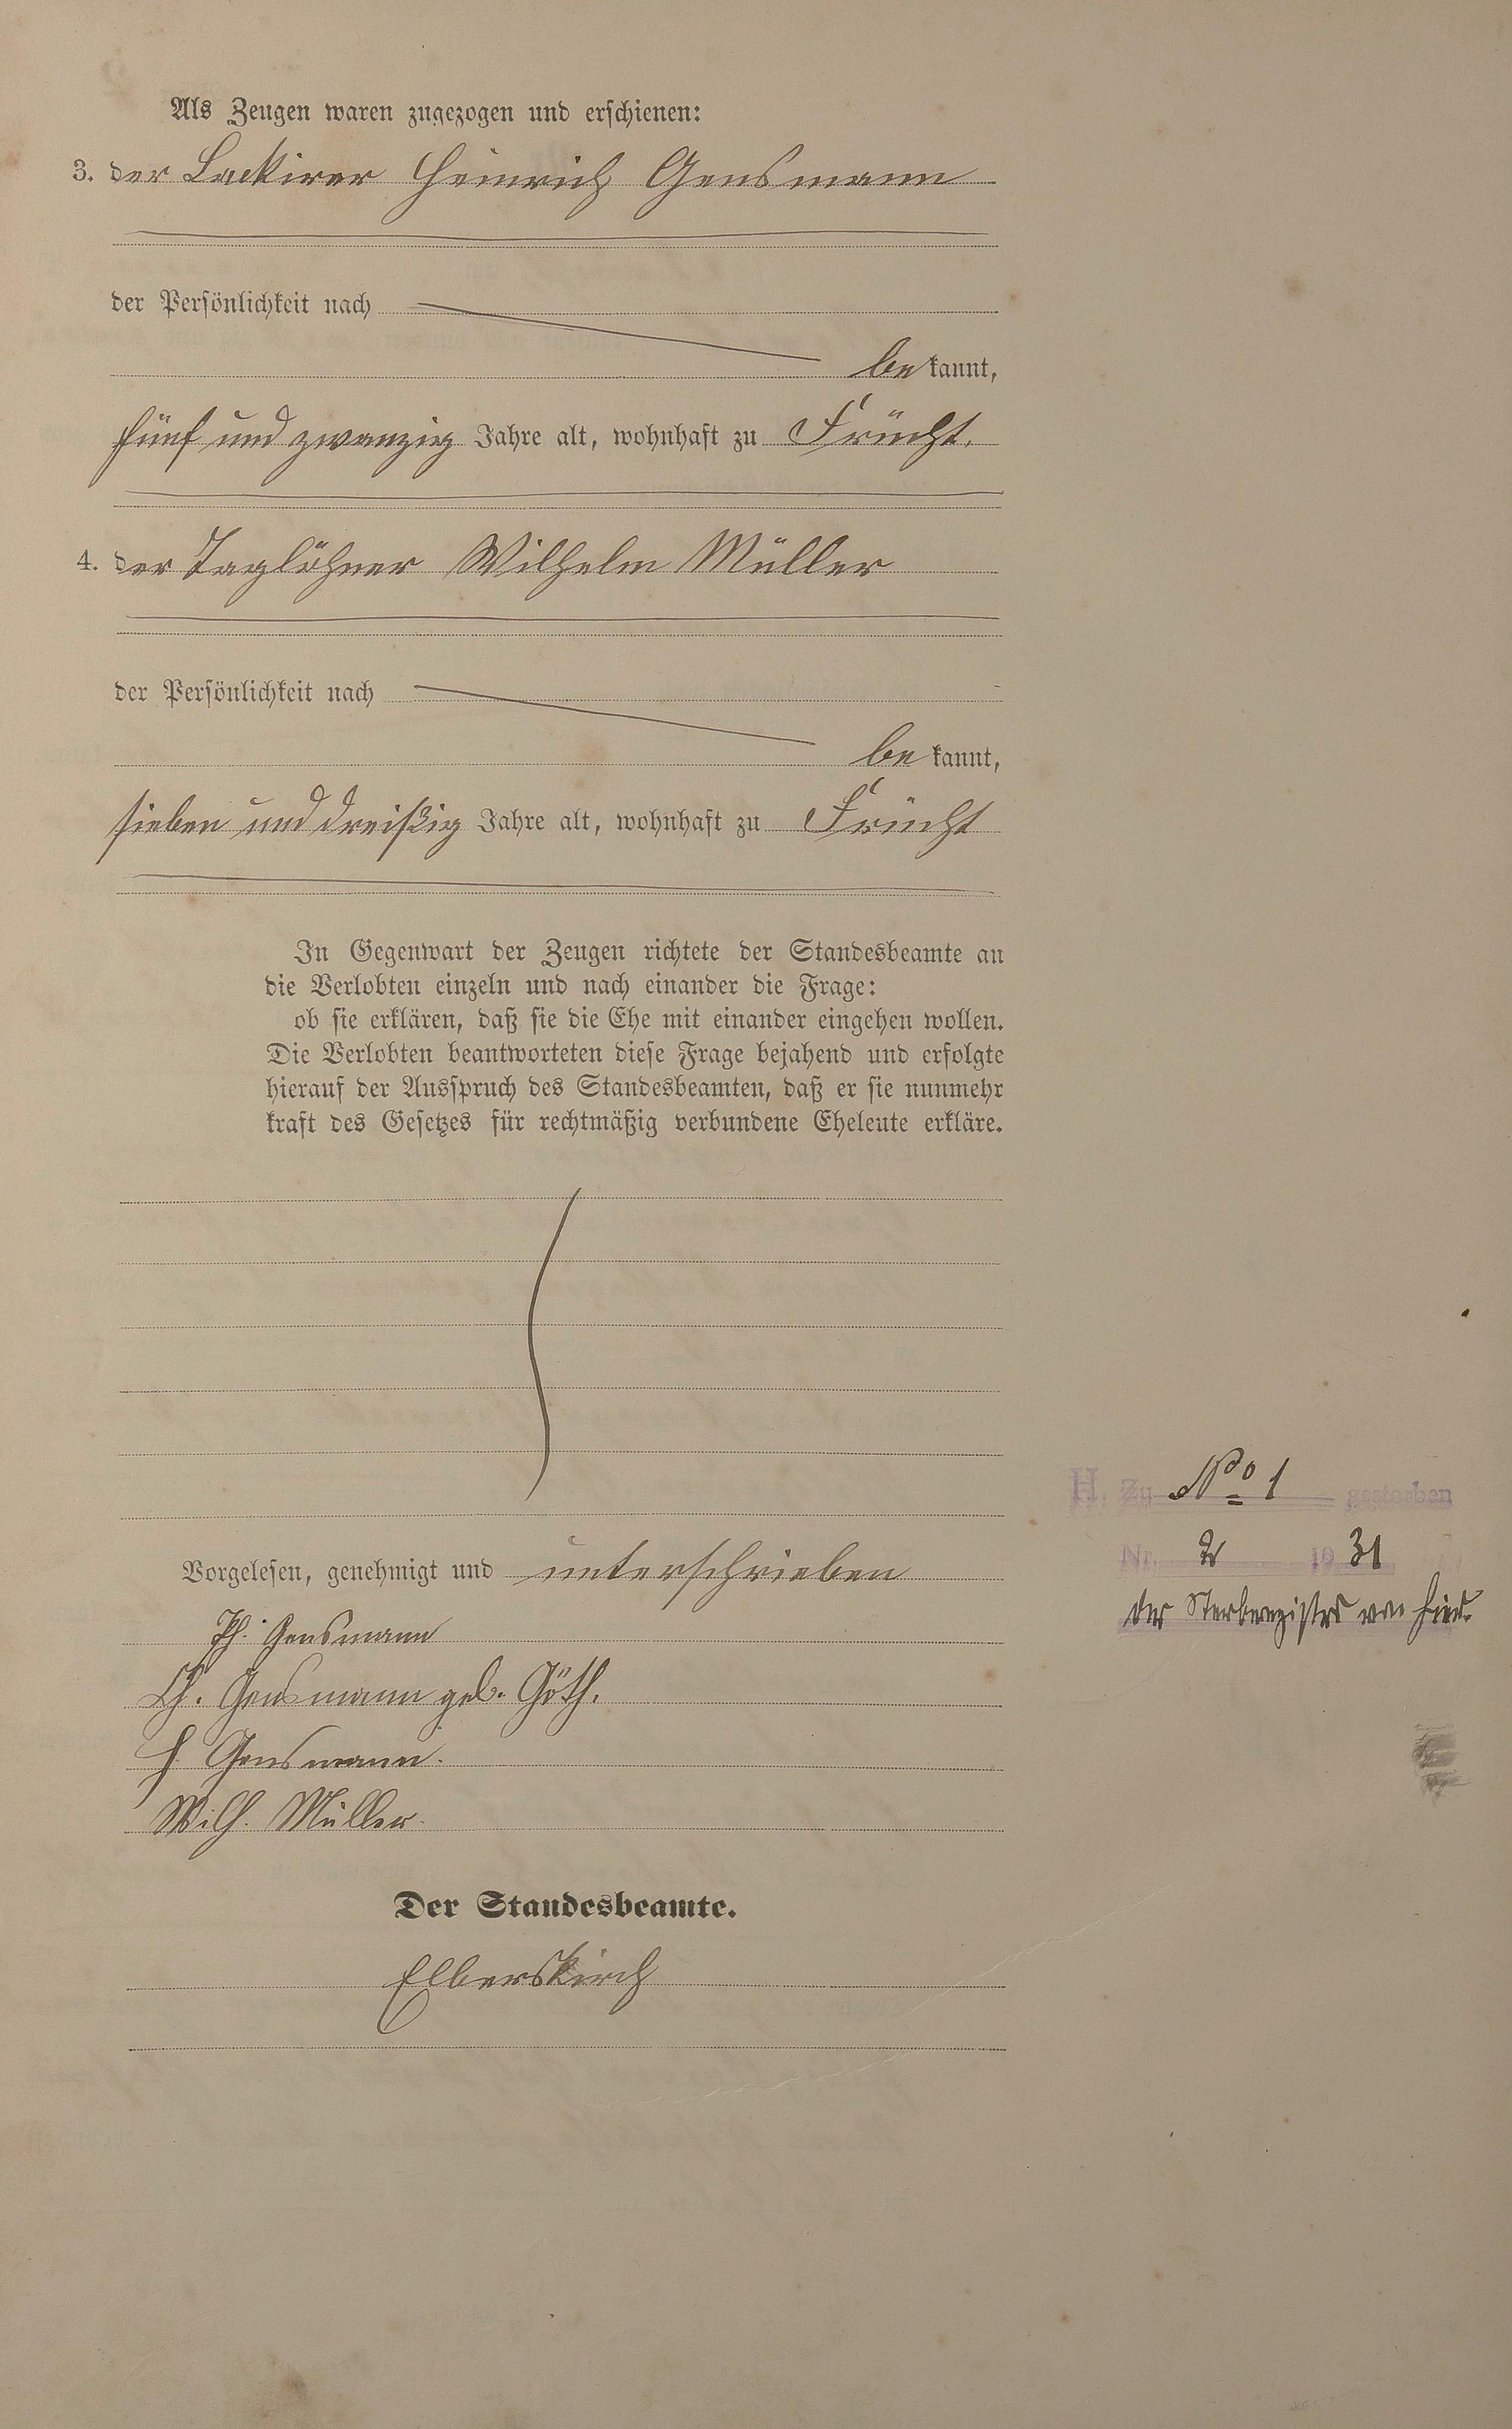 Als Zeugen waren zugezogen und erschienen:
3. der Lackirer Heinrich Gensmann
der Persönlichkeit nach
be kannt,
fünf und zwanzig Jahre alt, wohnhaft zu Frücht.
4. der Taglöhner Wilhelm Müller
der Persönlichkeit nach
be kannt,
sieben und dreißig Jahre alt, wohnhaft zu Frücht
In Gegenwart der Zeugen richtete der Standesbeamte an
die Verlobten einzeln und nach einander die Frage:
ob sie erklären, daß sie die Ehe mit einander eingehen wollen.
Die Verlobten beantworteten diese Frage bejahend und erfolgte
hierauf der Ausspruch des Standesbeamten, daß er sie nunmehr
kraft des Gesetzes für rechtmäßig verbundene Eheleute erkläre.
Vorgelesen, genehmigt und unterschrieben
Ph. Gensmann
Ch. Gensmann geb. Göth.
H. Gensmann.
Wilh. Müller.
Der Standesbeamte.
Elberskirch
H. Zu No 1 gestorben
Nr. 2 19 31
der Sterberegisters von hier.